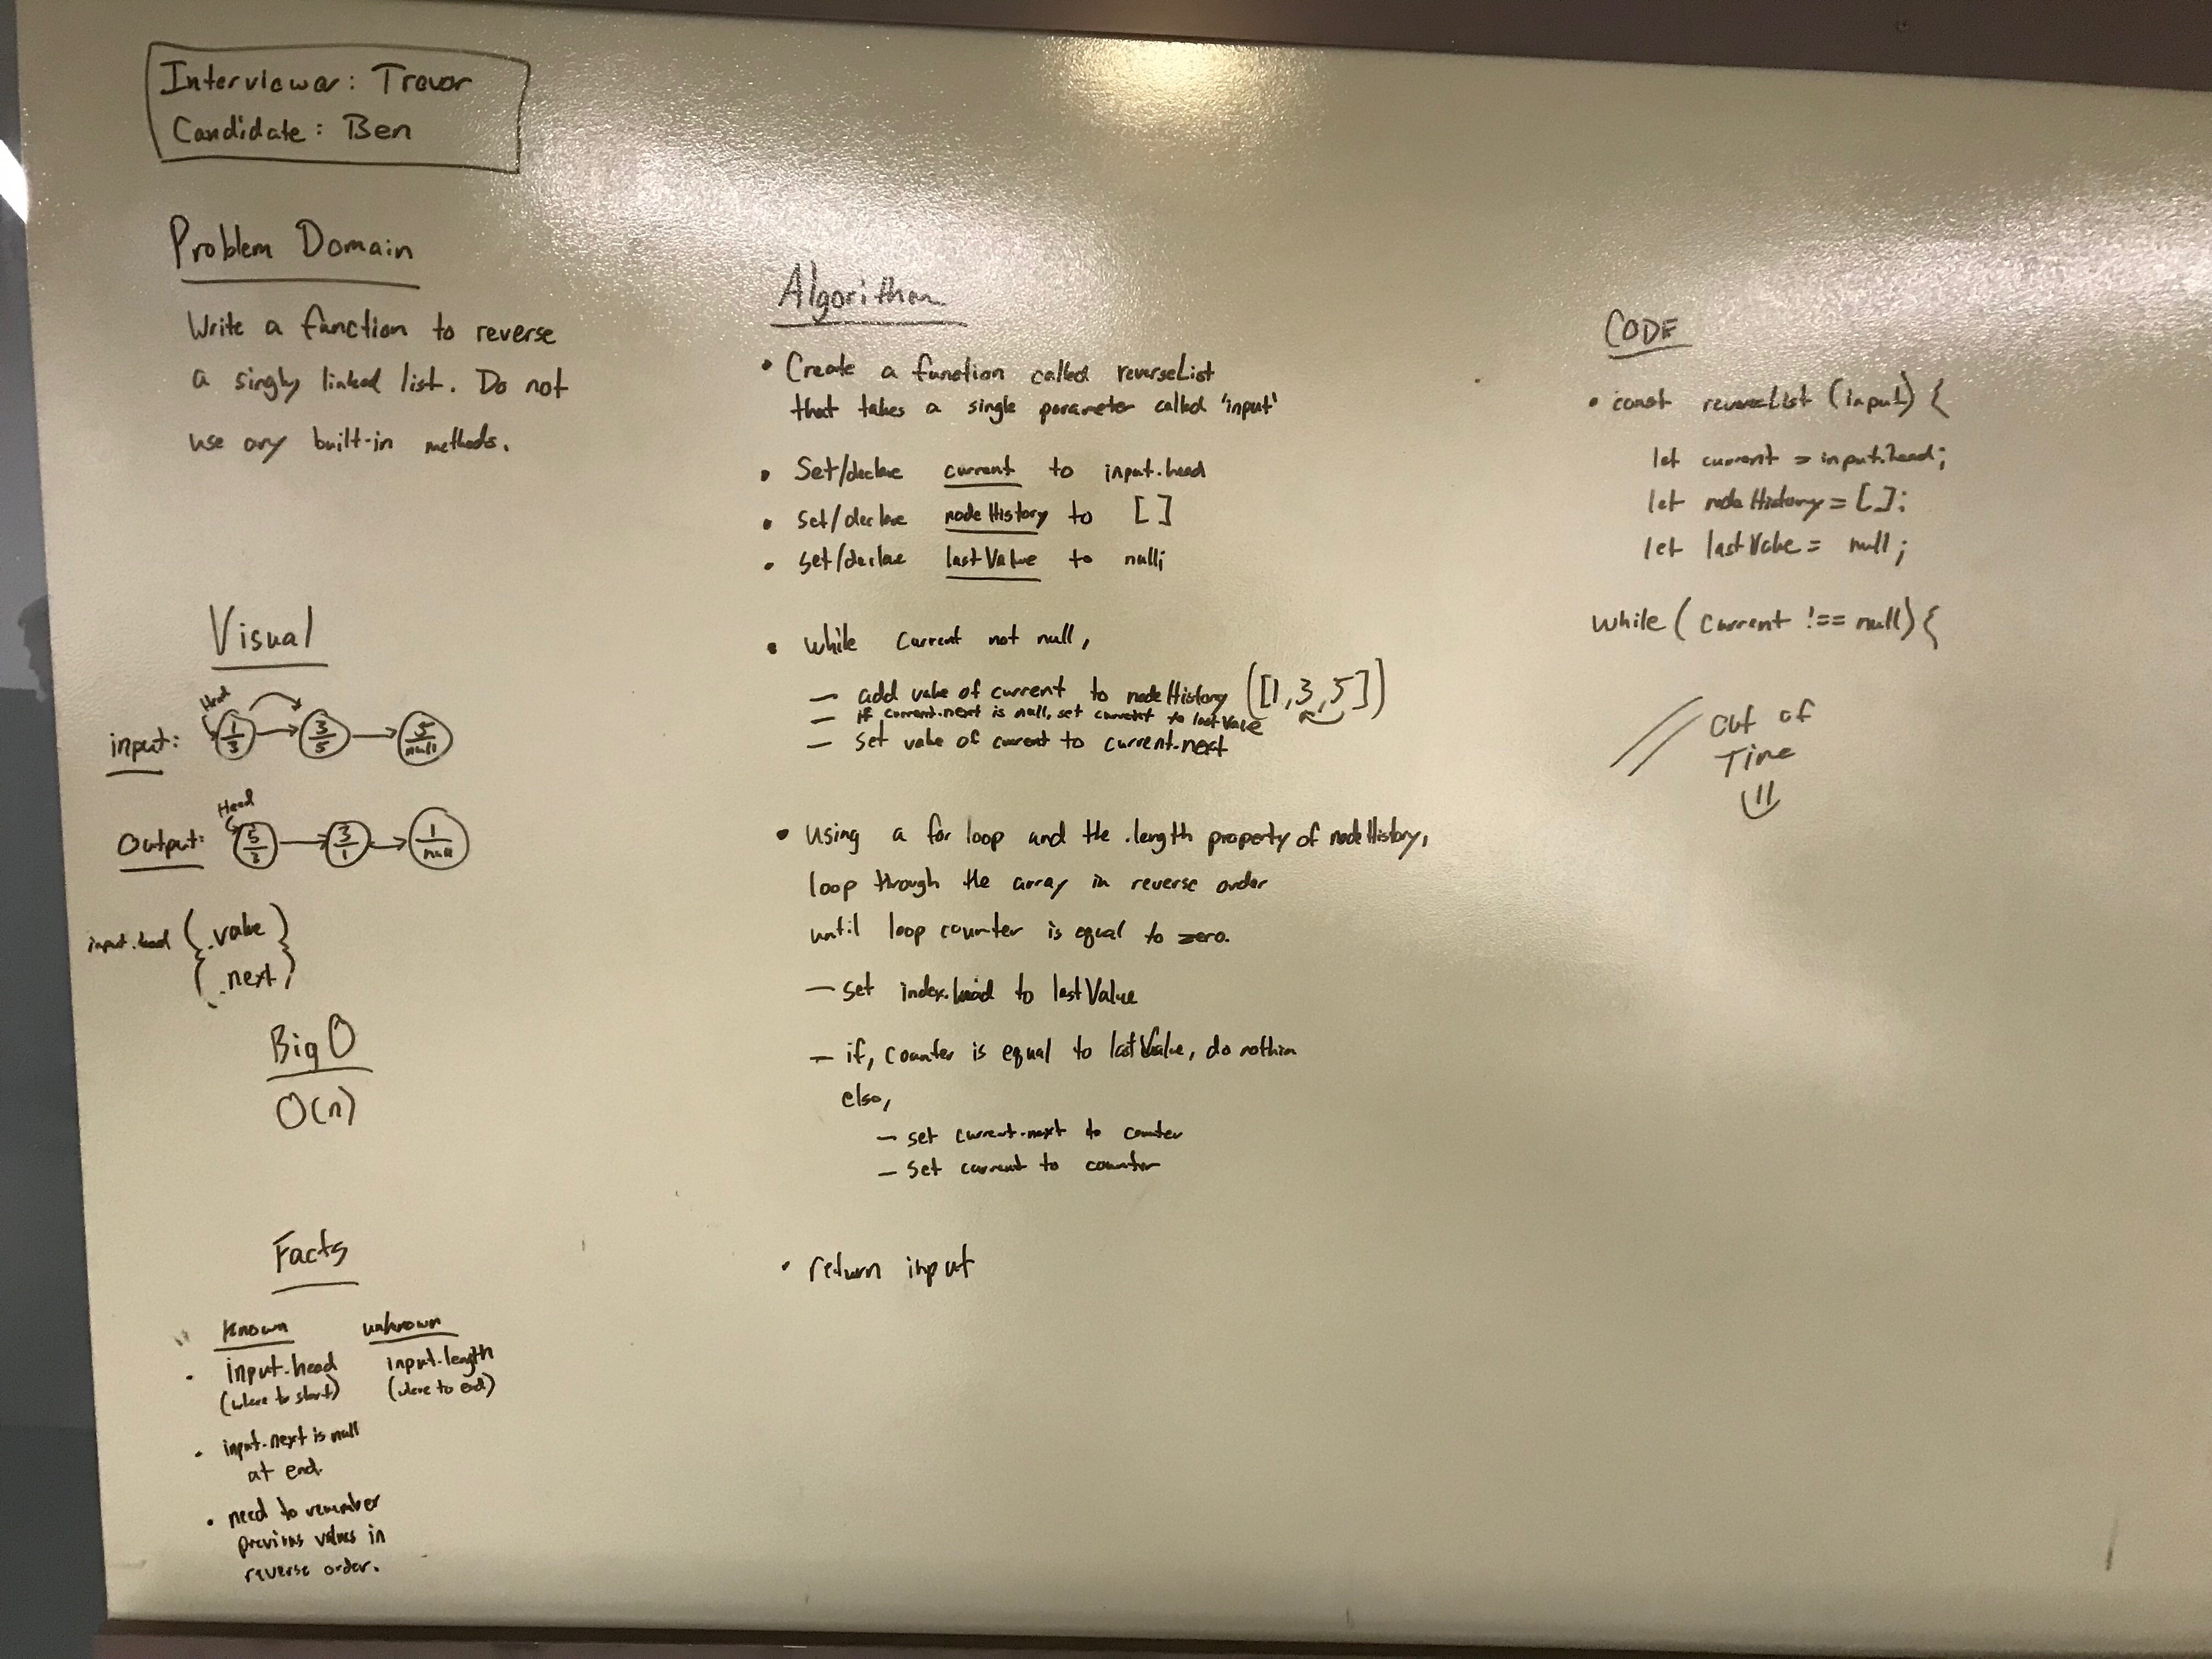 Interviewer: Trevor
Candidate: Ben
Problem Domain
Write a function to reverse
a singly linked list. Do not
use any built-in methods.
Visual
Head
input:
1
3
3
5
5
null
Head
Output:
5
3
3
1
1
null
input.head { .value
.next }
Big O
O(n)
Facts
Known
unknown
• input.head
(where to start)
input.length
(where to end)
• input.next is null
at end.
• need to remember
previous values in
reverse order.
Algorithm
• Create a function called reverseList
that takes a single parameter called 'input'
• Set/declare current to input.head
• set/declare nodeHistory to [ ]
• set/declare lastValue to null;
• while current not null,
— add value of current to nodeHistory ([1,3,5])
— if current.next is null, set current to lastValue
— set value of current to current.next
• Using a for loop and the .length property of nodeHistory,
loop through the array in reverse order
until loop counter is equal to zero.
— set index.head to lastValue
— if, counter is equal to lastValue, do nothin
else,
— set current.next to counter
— set current to counter
• return input
CODE
• const reverseList (input) {
let current = input.head;
let nodeHistory = [];
let lastValue = null;
while ( current !== null) {
// Out of
Time